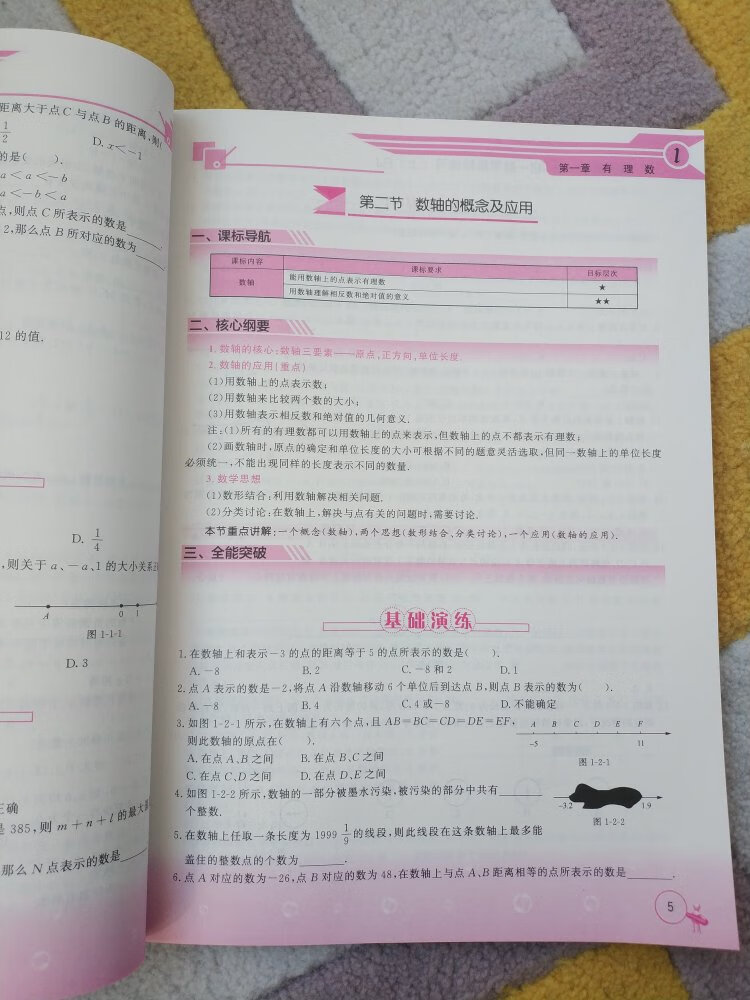 距离大于点C与点B的距离,则
1
2
D. x<-1
的是( ).
a<a<-b
a<-b<a
点,则点 C 所表示的数是______.
2,那么点 B 所对应的数为______.
12 的值.
D. 1/4
,则关于 a、-a、1 的大小关系
A 0 1
图 1-1-1
D. 3
正确
是 385,则 m+n+l 的最大
那么 N 点表示的数是______
第一章 有 理 数
1
第二节 数轴的概念及应用
一、课标导航
课标内容 课标要求 目标层次
数轴 能用数轴上的点表示有理数 ★
用数轴理解相反数和绝对值的意义 ★★
二、核心纲要
1. 数轴的核心:数轴三要素——原点,正方向,单位长度
2. 数轴的应用(重点)
(1)用数轴上的点表示数;
(2)用数轴来比较两个数的大小;
(3)用数轴表示相反数和绝对值的几何意义.
注:(1)所有的有理数都可以用数轴上的点来表示,但数轴上的点不都表示有理数;
(2)画数轴时,原点的确定和单位长度的大小可根据不同的题意灵活选取,但同一数轴上的单位长度
必须统一,不能出现同样的长度表示不同的数量.
3. 数学思想
(1)数形结合:利用数轴解决相关问题.
(2)分类讨论:在数轴上,解决与点有关的问题时,需要讨论.
本节重点讲解:一个概念(数轴),两个思想(数形结合、分类讨论),一个应用(数轴的应用).
三、全能突破
基础演练
1. 在数轴上和表示-3 的点的距离等于 5 的点所表示的数是( ).
A. -8 B. 2 C. -8 和 2 D. 1
2. 点 A 表示的数是-2,将点 A 沿数轴移动 6 个单位后到达点 B,则点 B 表示的数为( ).
A. -8 B. 4 C. 4 或-8 D. 不能确定
3. 如图 1-2-1 所示,在数轴上有六个点,且 AB=BC=CD=DE=EF,
则此数轴的原点在( ).
A. 在点 A、B 之间 B. 在点 B、C 之间
C. 在点 C、D 之间 D. 在点 D、E 之间
A B C D E F
-5 11
图 1-2-1
4. 如图 1-2-2 所示,数轴的一部分被墨水污染,被污染的部分中共有______
个整数.
-3.2 1.9
图 1-2-2
5. 在数轴上任取一条长度为 1999 1/9 的线段,则此线段在这条数轴上最多能
盖住的整数点的个数为______.
6. 点 A 对应的数为-26,点 B 对应的数为 48,在数轴上与点 A、B 距离相等的点所表示的数是______.
5